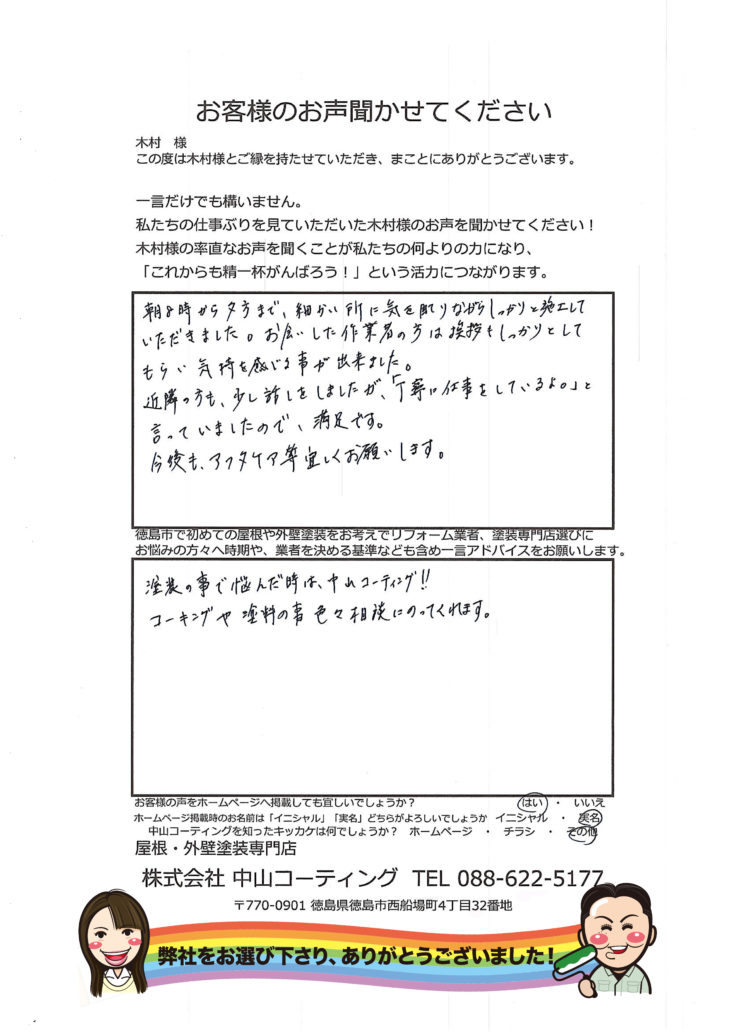 お客様のお声聞かせてください
木村　様
この度は木村様とご縁を持たせていただき、まことにありがとうございます。
一言だけでも構いません。
私たちの仕事ぶりを見ていただいた木村様のお声を聞かせてください！
木村様の率直なお声を聞くことが私たちの何よりの力になり、
「これからも精一杯がんばろう！」という活力につながります。
朝8時から夕方まで、細かい所に気を配りながらしっかりと施工して
いただきました。お会いした作業者の方は挨拶もしっかりとして
もらい気持を感じる事が出来ました。
近隣の方も、少し話しをしましたが、「丁寧に仕事をしているよ。」と
言っていましたので、満足です。
今後も、アフタケア等宜しくお願いします。
徳島市で初めての屋根や外壁塗装をお考えでリフォーム業者、塗装専門店選びに
お悩みの方々へ時期や、業者を決める基準なども含め一言アドバイスをお願いします。
塗装の事で悩んだ時は、中山コーティング!!
コーキングや塗料の事色々相談にのってくれます。
お客様の声をホームページへ掲載しても宜しいでしょうか？　はい　・　いいえ
ホームページ掲載時のお名前は「イニシャル」「実名」どちらがよろしいでしょうか　イニシャル　・　実名
中山コーティングを知ったキッカケは何でしょうか？　ホームページ　・　チラシ　・　その他
屋根・外壁塗装専門店
株式会社 中山コーティング　TEL 088-622-5177
〒770-0901 徳島県徳島市西船場町4丁目32番地
弊社をお選び下さり、ありがとうございました！